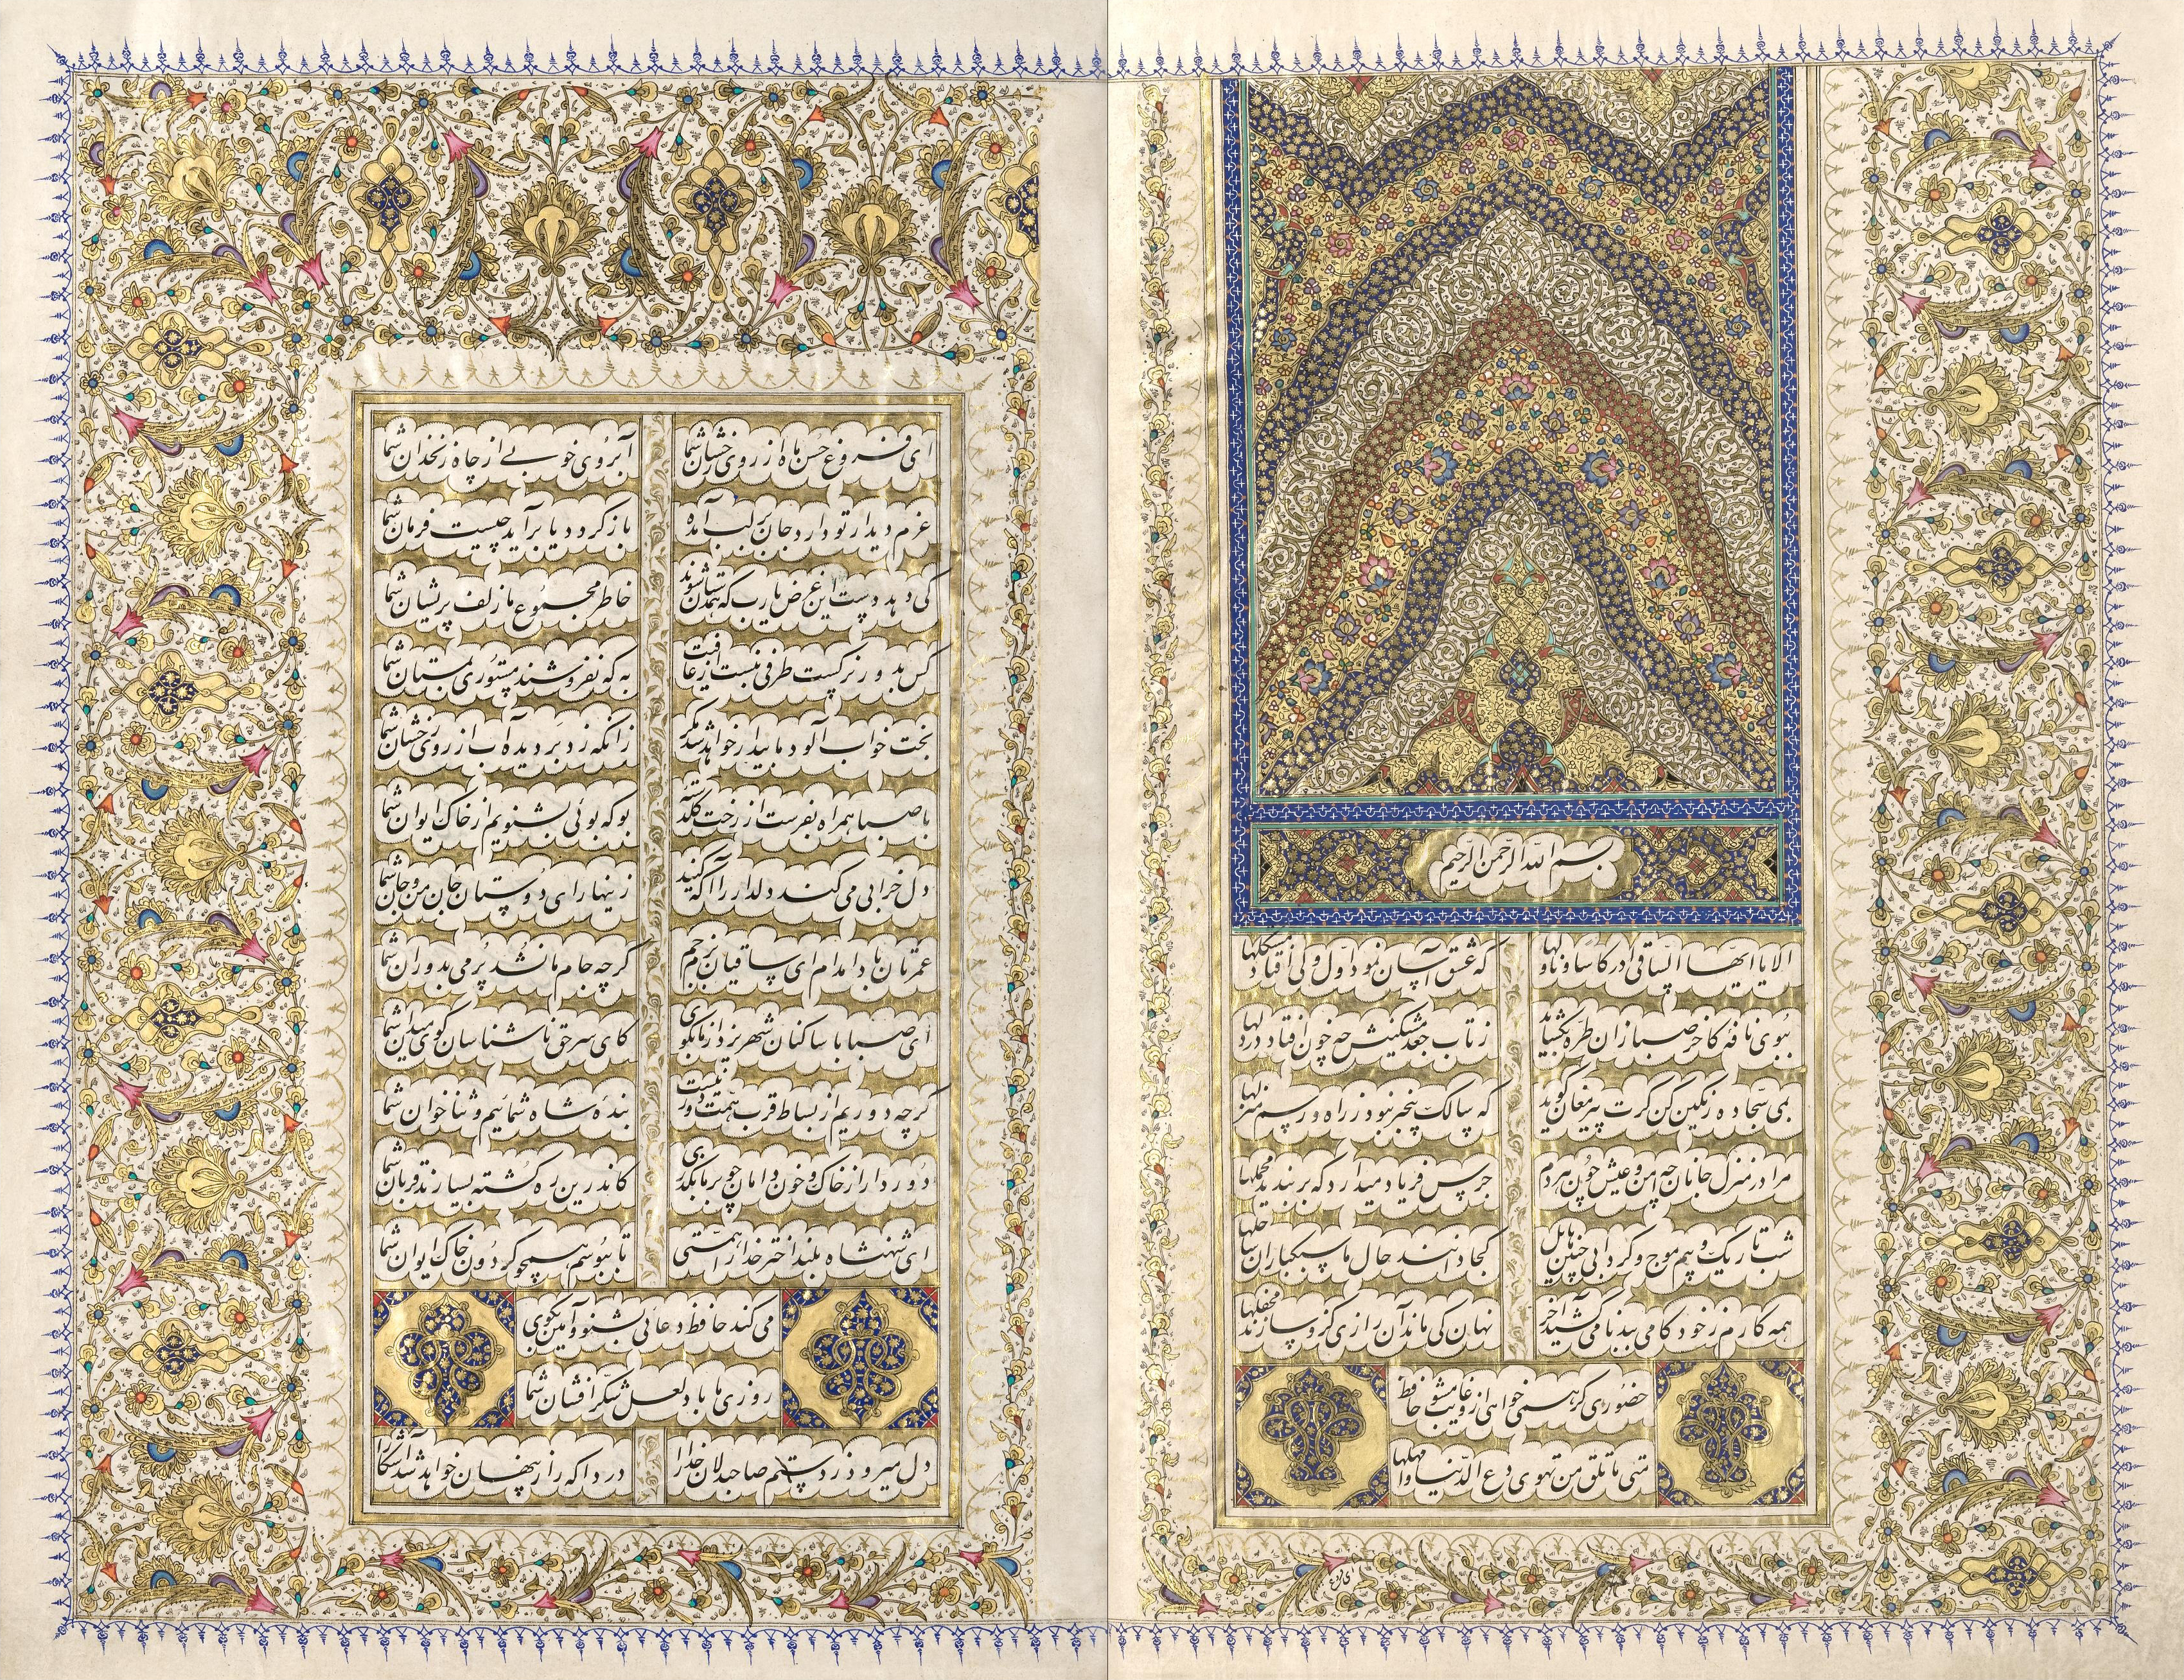 بسم الله الرحمن الرحیم
الا یا ایها الساقی ادر کاسا و ناولها که عشق آسان نمود اول ولی افتاد مشکلها
ببوی نافه کاخر صبا زان طره بگشاید ز تاب جعد مشکینش چه خون افتاد در دلها
بمی سجاده رنگین کن گرت پیر مغان گوید که سالک بیخبر نبود ز راه و رسم منزلها
مرا در منزل جانان چه امن و عیش چون هردم جرس فریاد میدارد که بربندید محملها
شب تاریک و بیم موج و گردابی چنین هایل کجا دانند حال ما سبکباران ساحلها
همه کارم ز خود کامی ببدنامی کشید آخر نهان کی ماند آن رازی کزو سازند محفلها
حضوری گر همی خواهی ازو غایب مشو حافظ
متی ما تلق من تهوی دع الدنیا و اهملها
ای فروغ
ای فروغ حسن ماه از روی رخشان شما آبروی خوبی از چاه زنخدان شما
عزم دیدار تو دارد جان بر لب آمده باز گردد یا برآید چیست فرمان شما
کی دهد دست این غرض یارب که همدستان شوند خاطر مجموع ما زلف پریشان شما
کس بدور نرگست طرفی نبست از عافیت به که نفروشند مستوری بمستان شما
بخت خواب آلود ما بیدار خواهد شد مگر زانکه زد بر دیده آب از روی رخشان شما
با صبا همراه بفرست از رخت گلدسته بو که بوئی بشنویم از خاک ایوان شما
دل خرابی می کند دلدار را آگه کنید زینهار ای دوستان جان من و جان شما
عمرتان بادا مدام ای ساقیان بزم جم گرچه جام ما نشد پر می بدوران شما
ای صبا با ساکنان شهر یزد از ما بگوی کای سر حق ناشناسان گوی میدان شما
گرچه دوریم از بساط قرب همت دور نیست بنده شاه شمائیم و ثنا خوان شما
دور دار از خاک و خون دامان چو بر ما بگذری کاندرین ره کشته بسیارند قربان شما
ای شهنشاه بلند اختر خدا را همتی تا ببوسم همچو گردون خاک ایوان شما
می کند حافظ دعائی بشنو و آمین بگوی
روزی ما باد لعل شکر افشان شما
دل میرود ز دستم صاحبدلان خدا را دردا که راز پنهان خواهد شد آشکارا